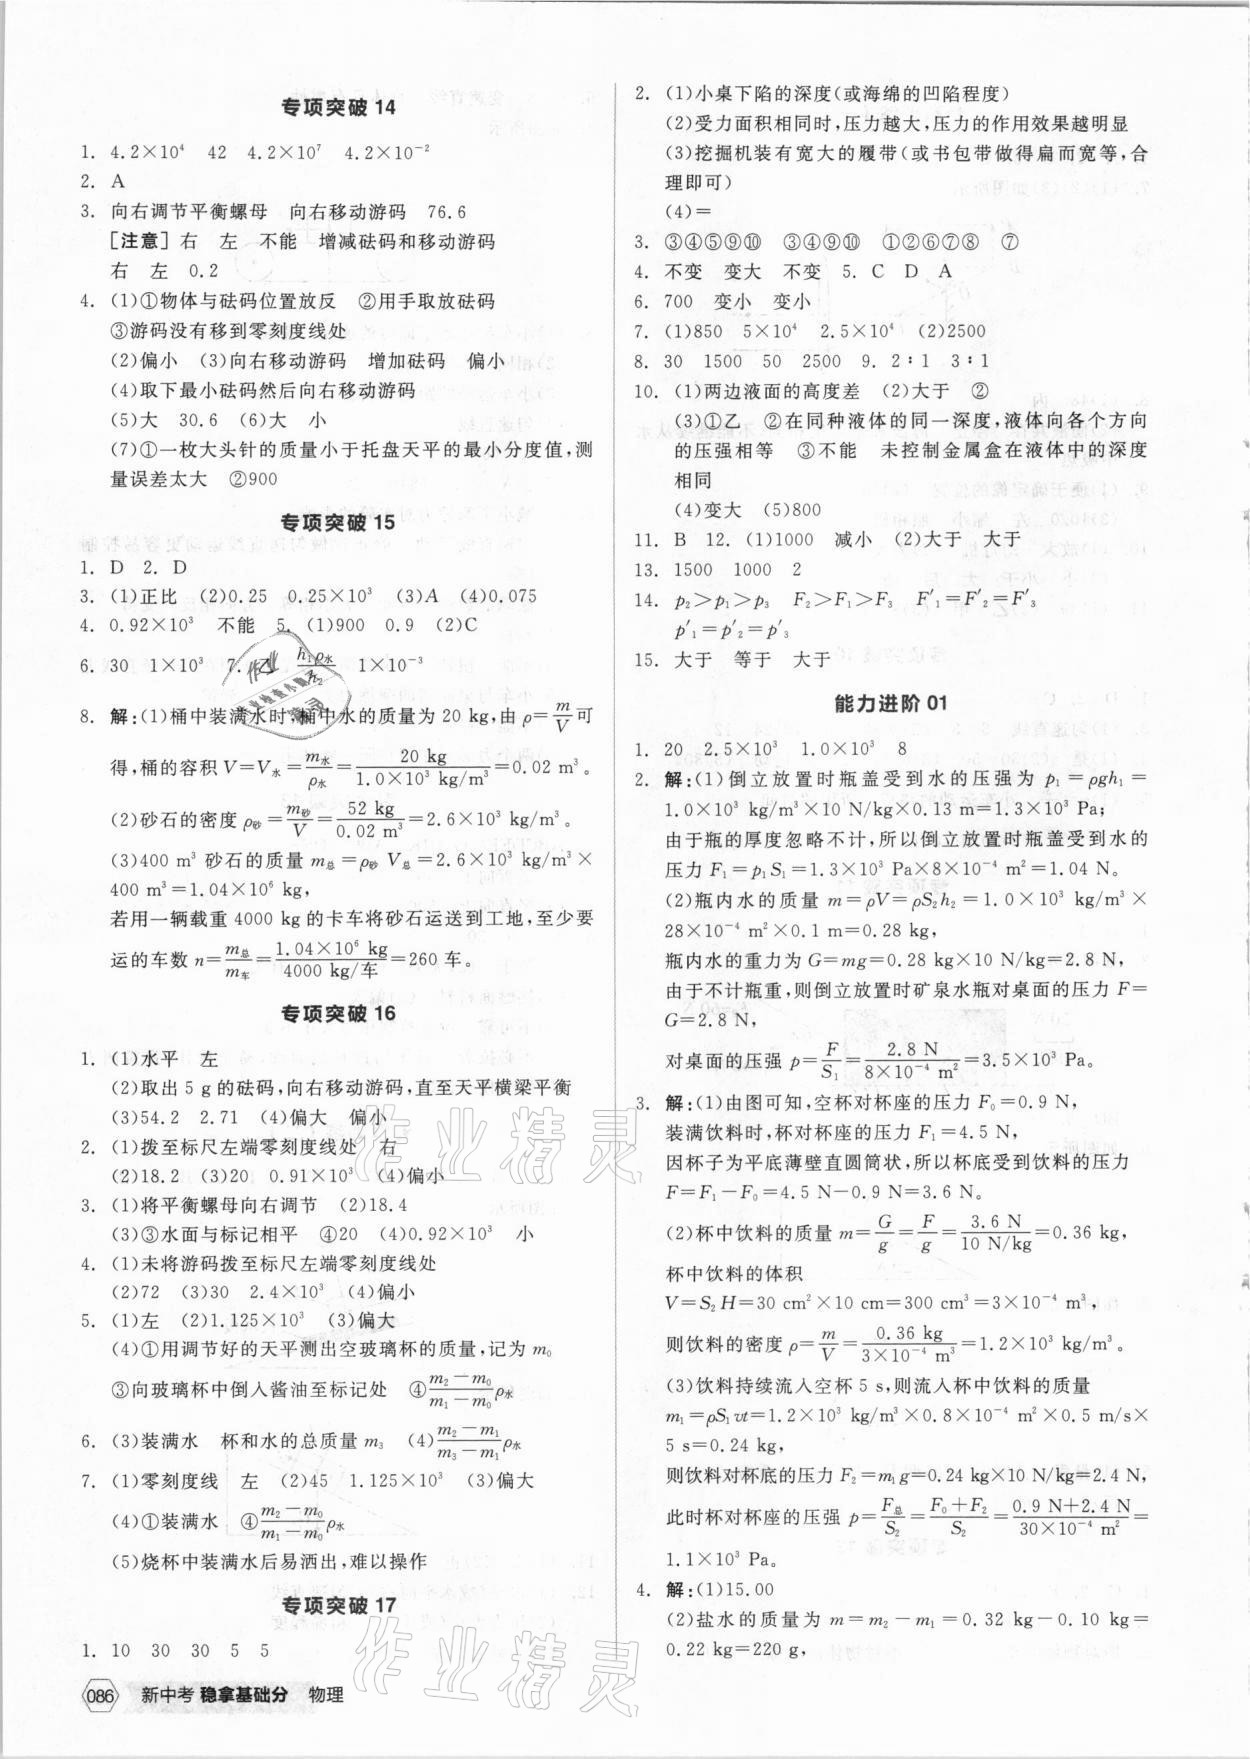 专项突破 14
1. 4.2×10⁴  42  4.2×10⁷  4.2×10⁻²
2. A
3. 向右调节平衡螺母  向右移动游码  76.6
[注意]右  左  不能  增减砝码和移动游码
右  左  0.2
4. (1)①物体与砝码位置放反  ②用手取放砝码
③游码没有移到零刻度线处
(2)偏小  (3)向右移动游码  增加砝码  偏小
(4)取下最小砝码然后向右移动游码
(5)大  30.6  (6)大  小
(7)①一枚大头针的质量小于托盘天平的最小分度值,测
量误差太大  ②900
专项突破 15
1. D  2. D
3. (1)正比  (2)0.25  0.25×10³  (3)A  (4)0.075
4. 0.92×10³  不能  5. (1)900  0.9  (2)C
6. 30  1×10³  7. 乙  h₁ρ水/h₂  1×10⁻³
8. 解:(1)桶中装满水时,桶中水的质量为 20 kg,由 ρ=m/V可
得,桶的容积 V=V水=m水/ρ水=20 kg/1.0×10³ kg/m³=0.02 m³。
(2)砂石的密度 ρ砂=m砂/V=52 kg/0.02 m³=2.6×10³ kg/m³。
(3)400 m³ 砂石的质量 m总=ρ砂 V总=2.6×10³ kg/m³×
400 m³=1.04×10⁶ kg,
若用一辆载重 4000 kg 的卡车将砂石运送到工地,至少要
运的车数 n=m总/m车=1.04×10⁶ kg/4000 kg/车=260 车。
专项突破 16
1. (1)水平  左
(2)取出 5 g 的砝码,向右移动游码,直至天平横梁平衡
(3)54.2  2.71  (4)偏大  偏小
2. (1)拨至标尺左端零刻度线处  右
(2)18.2  (3)20  0.91×10³  (4)偏小
3. (1)将平衡螺母向右调节  (2)18.4
(3)③水面与标记相平  ④20  (4)0.92×10³  小
4. (1)未将游码拨至标尺左端零刻度线处
(2)72  (3)30  2.4×10³  (4)偏小
5. (1)左  (2)1.125×10³  (3)偏大
(4)①用调节好的天平测出空玻璃杯的质量,记为 m₀
③向玻璃杯中倒入酱油至标记处  ④m₂-m₀/m₁-m₀ρ水
6. (3)装满水  杯和水的总质量 m₃  (4)m₂-m₁/m₃-m₁ρ水
7. (1)零刻度线  左  (2)45  1.125×10³  (3)偏大
(4)①装满水  ④m₂-m₀/m₁-m₀ρ水
(5)烧杯中装满水后易洒出,难以操作
专项突破 17
1. 10  30  30  5  5
086 新中考 稳拿基础分  物理
2. (1)小桌下陷的深度(或海绵的凹陷程度)
(2)受力面积相同时,压力越大,压力的作用效果越明显
(3)挖掘机装有宽大的履带(或书包带做得扁而宽等,合
理即可)
(4)=
3. ③④⑤⑨⑩  ③④⑨⑩  ①②⑥⑦⑧  ⑦
4. 不变  变大  不变  5. C  D  A
6. 700  变小  变小
7. (1)850  5×10⁴  2.5×10⁴  (2)2500
8. 30  1500  50  2500  9. 2∶1  3∶1
10. (1)两边液面的高度差  (2)大于  ②
(3)①乙  ②在同种液体的同一深度,液体向各个方向
的压强相等  ③不能  未控制金属盒在液体中的深度
相同
(4)变大  (5)800
11. B  12. (1)1000  减小  (2)大于  大于
13. 1500  1000  2
14. p₂>p₁>p₃  F₂>F₁>F₃  F′₁=F′₂=F′₃
p′₁=p′₂=p′₃
15. 大于  等于  大于
能力进阶 01
1. 20  2.5×10³  1.0×10³  8
2. 解:(1)倒立放置时瓶盖受到水的压强为 p₁=ρgh₁=
1.0×10³ kg/m³×10 N/kg×0.13 m=1.3×10³ Pa;
由于瓶的厚度忽略不计,所以倒立放置时瓶盖受到水的
压力 F₁=p₁S₁=1.3×10³ Pa×8×10⁻⁴ m²=1.04 N。
(2)瓶内水的质量 m=ρV=ρS₂h₂=1.0×10³ kg/m³×
28×10⁻⁴ m²×0.1 m=0.28 kg,
瓶内水的重力为 G=mg=0.28 kg×10 N/kg=2.8 N,
由于不计瓶重,则倒立放置时矿泉水瓶对桌面的压力 F=
G=2.8 N,
对桌面的压强 p=F/S₁=2.8 N/8×10⁻⁴ m²=3.5×10³ Pa。
3. 解:(1)由图可知,空杯对杯座的压力 F₀=0.9 N,
装满饮料时,杯对杯座的压力 F₁=4.5 N,
因杯子为平底薄壁直圆筒状,所以杯底受到饮料的压力
F=F₁-F₀=4.5 N-0.9 N=3.6 N。
(2)杯中饮料的质量 m=G/g=F/g=3.6 N/10 N/kg=0.36 kg,
杯中饮料的体积
V=S₂H=30 cm²×10 cm=300 cm³=3×10⁻⁴ m³,
则饮料的密度 ρ=m/V=0.36 kg/3×10⁻⁴ m³=1.2×10³ kg/m³。
(3)饮料持续流入空杯 5 s,则流入杯中饮料的质量
m₁=ρS₁vt=1.2×10³ kg/m³×0.8×10⁻⁴ m²×0.5 m/s×
5 s=0.24 kg,
则饮料对杯底的压力 F₂=m₁g=0.24 kg×10 N/kg=2.4 N,
此时杯对杯座的压强 p=F总/S₂=F₀+F₂/S₂=0.9 N+2.4 N/30×10⁻⁴ m²=
1.1×10³ Pa。
4. 解:(1)15.00
(2)盐水的质量为 m=m₂-m₁=0.32 kg-0.10 kg=
0.22 kg=220 g,
作业精灵
作业精灵